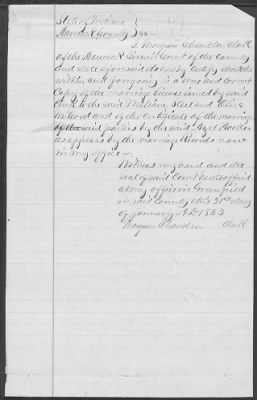 State of Indiana }
Hancock County } SS
I, Morgan Chandler Clerk
of the Hancock Circuit Court of the County
and State aforesaid do hereby Certify that the
within and foregoing is a true and Correct
Copy of the marriage license issued by said
Clerk to the said William Steel and
and of the Certificate of the marriage
of the said parties by the said
as appears by the marriage Records now
in my office
Witness my hand and the
seal of said Court hereto affixed
at my office in Greenfield
in said County this 31st day
of January A D 1863
Morgan Chandler Clerk